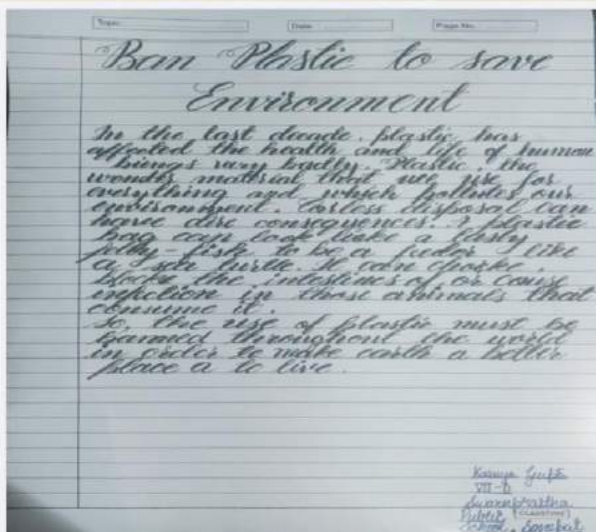 Topic:
Date:
Page No.
Ban Plastic to save
Environment
In the last decade, plastic has
affected the health and life of human
beings vary badly. Plastic the
wonder material that we use for
everything and which pollutes our
environment. Careless disposal can
have dire consequences. A plastic
bag can look like a tasty
jelly-fish to be a feeder like
a sea turtle. It can choke,
block the intestines of or cause
infection in those animals that
consume it.
So, the use of plastic must be
banned throughout the world
in order to make earth a better
place a to live.
Gupta
VII-D
Swarnprastha
Public
School, Sonepat